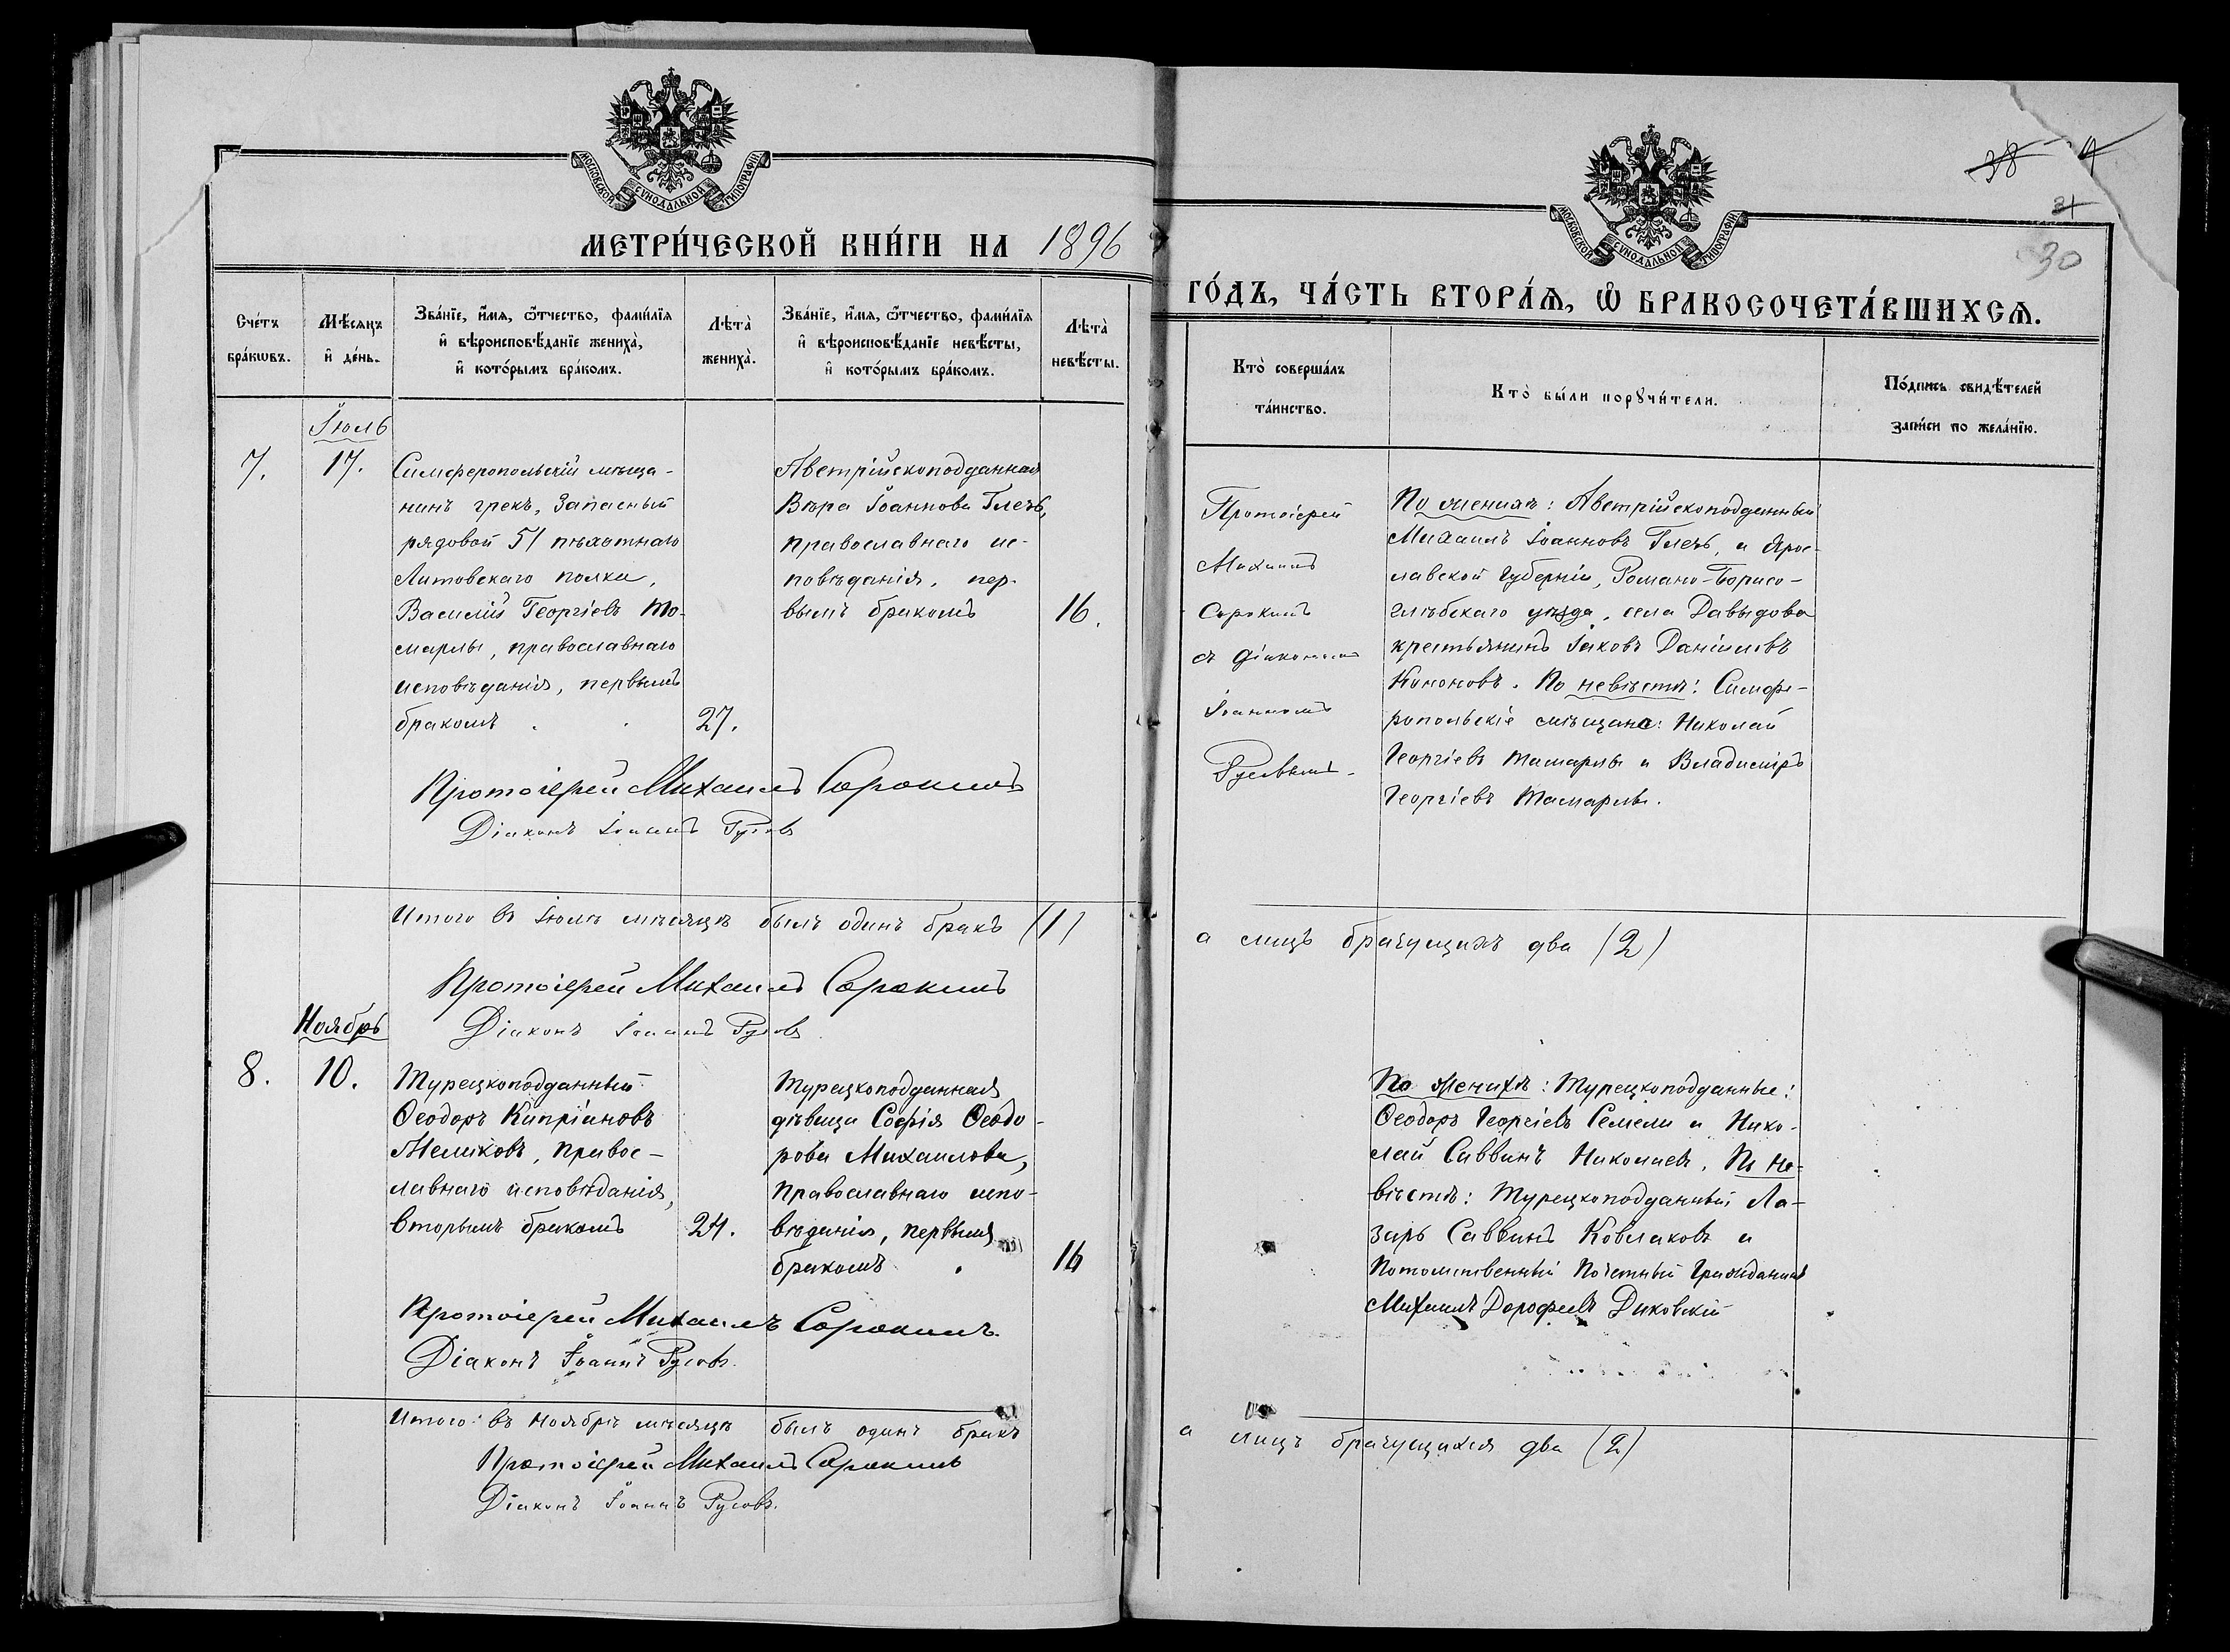 МОСКОВСКОЙ СѴНОДАЛЬНОЙ ТИПОГРАФІИ.
МЕТРИ́ЧЕСКОЙ КНИ́ГИ НА 1896
Сче́тъ бра́кѡвъ.
Мѣ́сѧцъ и҆ де́нь.
Зва́нїе, и҆́мѧ, ѻ҆́тчество, фами́лїѧ и҆ вѣроисповѣ́данїе жениха̀, и҆ кото́рымъ бра́комъ.
Лѣта̀ жениха̀.
Зва́нїе, и҆́мѧ, ѻ҆́тчество, фами́лїѧ и҆ вѣроисповѣ́данїе невѣ́сты, и҆ кото́рымъ бра́комъ.
Лѣта̀ невѣ́сты.
Іюль
7.
17.
Симферопольскій мѣща-
нинъ грекъ, Запасный
рядовой 51 пѣхотнаго
Литовскаго полка,
Василій Георгіевъ То-
марлы, православнаго
исповѣданія, первымъ
бракомъ
27.
Австрійскоподданная
Вѣра Іоаннова Глезъ,
православнаго ис-
повѣданія, пер-
вымъ бракомъ
16.
Протоіерей Михаилъ Сорокинъ
Діаконъ Іоаннъ Русовъ
Итого въ Іюлѣ мѣсяцѣ былъ одинъ бракъ (1)
Протоіерей Михаилъ Сорокинъ
Діаконъ Іоаннъ Русовъ
Ноябрь
8.
10.
Турецкоподданный
Ѳеодоръ Кипріановъ
Мелиховъ, правос-
лавнаго исповѣданія,
вторымъ бракомъ
24.
Турецкоподданная
дѣвица Софія Ѳеодо-
рова Михаилова,
православнаго испо-
вѣданія, первымъ
бракомъ
16
Протоіерей Михаилъ Сорокинъ.
Діаконъ Іоаннъ Русовъ.
Итого въ Ноябрѣ мѣсяцѣ былъ одинъ бракъ
Протоіерей Михаилъ Сорокинъ
Діаконъ Іоаннъ Русовъ.
38
31
30
МОСКОВСКОЙ СѴНОДАЛЬНОЙ ТИПОГРАФІИ.
ГО́ДЪ, ЧА́СТЬ ВТОРА́Ѧ, Ѡ҆ БРАКОСОЧЕТА́ВШИХСѦ.
Кто̀ соверша́лъ та́инство.
Кто̀ бы́ли порꙋчи́тели.
По́дпись свидѣ́телей за́писи по жела́нїю.
Протоіерей
Михаилъ
Сорокинъ
съ діакономъ
Іоанномъ
Русовымъ.
По женихѣ: Австрійскоподданный
Михаилъ Іоанновъ Глезъ, и Ярос-
лавской губерніи, Романо-Борисо-
глѣбскаго уѣзда, села Давыдова
крестьянинъ Іаковъ Даніиловъ
Кононовъ. По невѣстѣ: Симфе-
ропольскіе мѣщане: Николай
Георгіевъ Тамарлы и Владиміръ
Георгіевъ Тамарлы.
а лицъ брачущихъ два (2)
По женихѣ: Турецкоподданные:
Ѳеодоръ Георгіевъ Семели и Нико-
лай Саввинъ Николаевъ. По не-
вѣстѣ: Турецкоподданный Ла-
зарь Саввинъ Ковлаковъ и
Потомственный Почетный Гражданинъ
Михаилъ Дорофеевъ Диковскій
а лицъ брачущихся два (2)